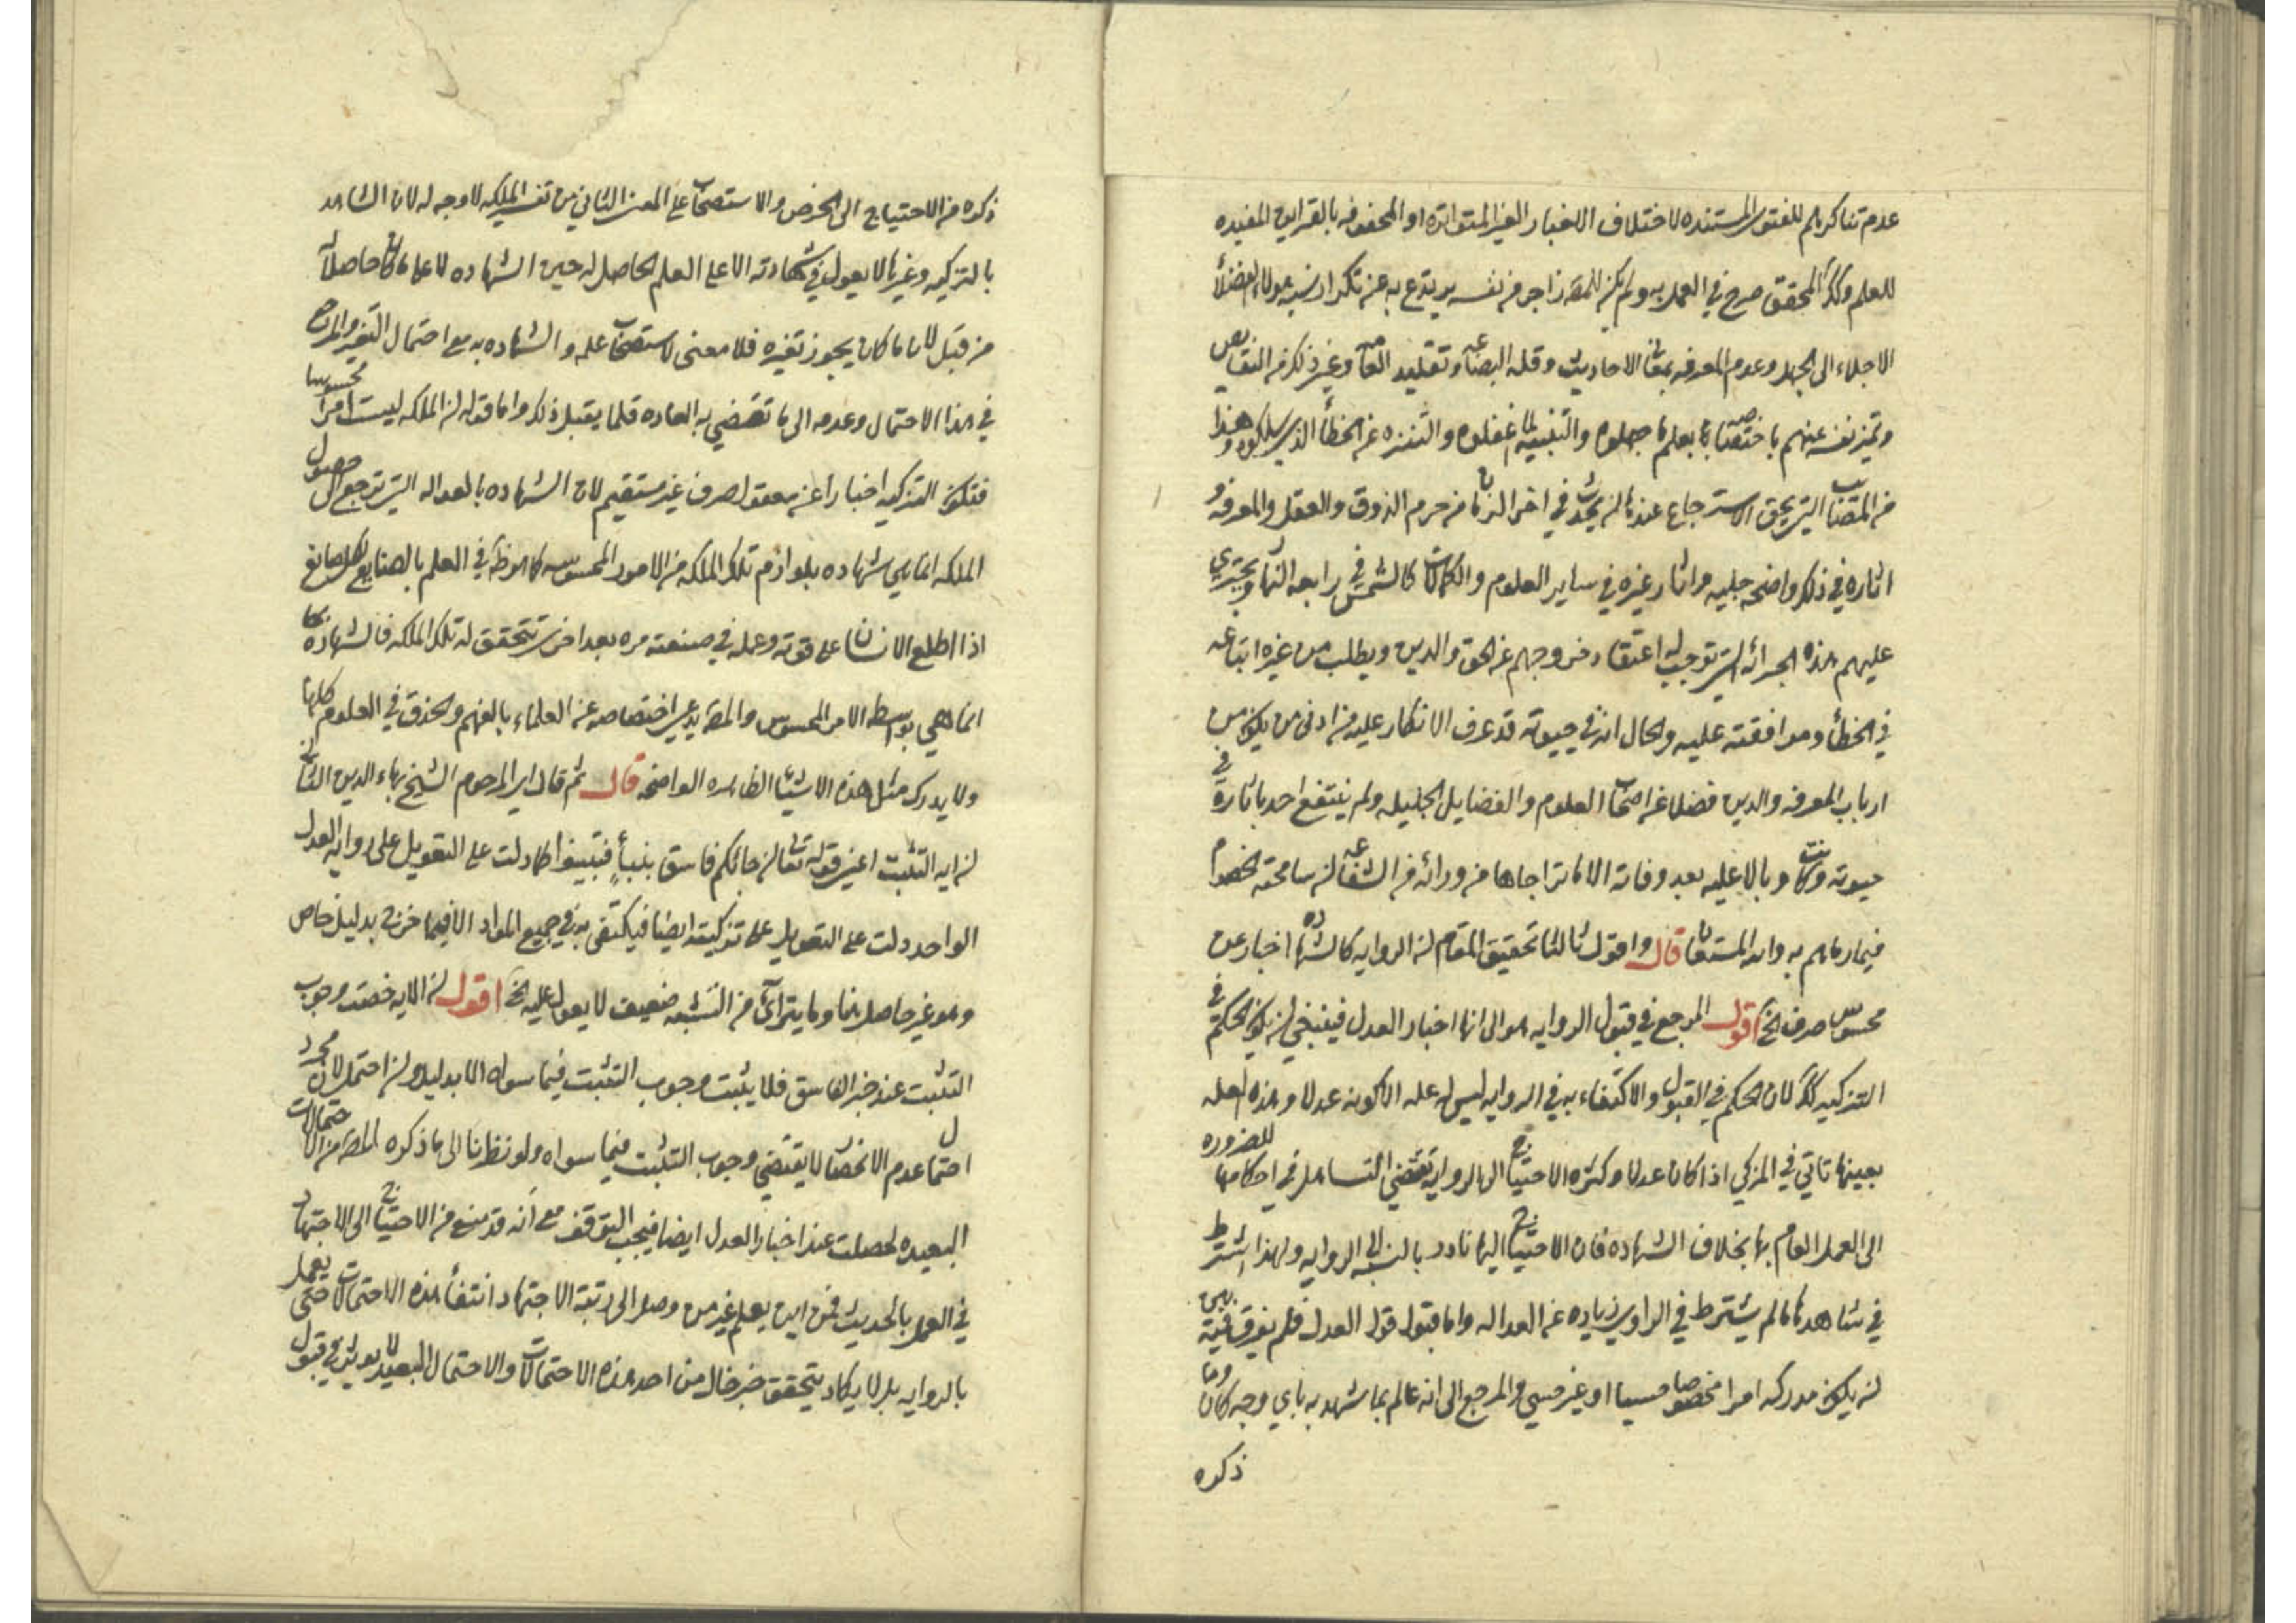 عدم تناكرهم للفتوى المستنده لاختلاف الاخبار الغير المتواتره او المحفوفه بالقراين المفيده
للعلم وكذا المحقق صرح في العمل به ولم يكن للمصه زاجر من نفسه يرتدع به عن تكرار نسبه هولاء الفضلاء
الاجلاء الى الجهل وعدم المعرفه بمعاني الاحاديث وقله البضاعه وتقليد العامه وغير ذلك من النقايص
وتميز نفسه عنهم باختصاصه بعلم ما جهلوه والتنبيه لما غفلوه والتنزه عن الخطأ الذي سلكوه وهذا
من المصايب التي يحق الاسترجاع عندها ان يحدث في اخر الزمان من حرم الذوق والعقل والمعرفه و
اثاره في ذلك واضحه جليه واثار غيره في ساير العلوم والكمالات كالشمس في رابعه النهار ويجتري
عليهم هذه الجرائه التي توجب له اعتقاد خروجهم عن الحق والدين ويطلب من غيره اتباعه
في الخطأ وموافقته عليه والحال انه في حيوته قد عرف الانكار عليه من ادنى من يكون من
ارباب المعرفه والدين فضلا عن اصحاب العلوم والفضايل الجليله ولم ينتفع احد باثاره في
حيوته وكانت وبالا عليه بعد وفاته الا ما تراجاها من ورائه من الشفاعه ان سامحته الخصوم
فيما رماهم به والله المستعان قال واقول ثالثا تحقيق المقام ان الروايه كالشهاده اخبار عن
محسوس صرف الخ اقول المرجع في قبول الروايه هو الى انها اخبار العدل فينبغي ان يكون الحكم في
التزكيه كذلك لان الحكم في القبول والاكتفاء به في الروايه ليس له عله الا كونه عدلا وهذه العله
بعينها تاتي في المزكي اذا كان عدلا وكثره الاحتياج الى الروايه تقتضي التساهل في احكامها للضروره
الى العمل العام بها بخلاف الشهاده فان الاحتياج اليها نادر بالنسبه الى الروايه ولهذا اشترط
في شاهدها ما لم يشترط في الراوي زياده عن العداله واما قبول قول العدل فلم يفرق فيه بين
ان يكون مدركه امرا مخصوصا حسيا او غير حسي والمرجع الى انه عالم بما شهد به باي وجه كان وما
ذكره
ذكره من الاحتياج الى الخرص والاستصحاب على المعنى الثاني من تفسير الملكه لا وجه له لان الشاهد
بالتزكيه وغيرها لا يعول في شهادته الا على العلم الحاصل له حين الشهاده لا على ما كان حاصلا له
من قبل لان ما كان يجوز تغيره فلا معنى لاستصحاب علمه والشهاده به مع احتمال التغير والمرجع
في هذا الاحتمال وعدمه الى ما تقتضي به العاده قلما يقبل ذلك واما قوله ان الملكه ليست امرا محسوسا
فتكون التزكيه اخبارا عن معقول صرف غير مستقيم لان الشهاده بالعداله التي ترجع الى حصول
الملكه انما هي شهاده بلوازم تلك الملكه من الامور المحسوسه كما هو ظاهر في العلم بالصنايع لكل صانع
اذا اطلع الانسان على قوته وعمله في صنعته مره بعد اخرى تتحقق له تلك الملكه فالشهاده بها
انما هي بواسطه الامر المحسوس والمصه يدعي اختصاصه عن العلماء بالفهم والحذق في العلوم كلها
ولا يدرك مثل هذه الاشياء الظاهره الواضحه قال ثم قال اي المرحوم الشيخ بهاء الدين الثاني
ان ايه التثبت اعني قوله تعالى ان جائكم فاسق بنبأ فتبينوا كما دلت على التعويل على روايه العدل
الواحد دلت على التعويل على تزكيته ايضا فيكتفى به في جميع المواد الا فيما خرج بدليل خاص
وهو غير حاصل هنا وما يترآى من الشبه ضعيف لا يعول عليه الخ اقول ان الايه خصت وجوب
التثبت عند خبر الفاسق فلا يثبت وجوب التثبت فيما سواه الا بدليل وان احتمل لان مجرد
احتمال عدم الانحصار لا يقتضي وجوب التثبت فيما سواه ولو نظرنا الى ما ذكره المصه من الاحتمالات
البعيده لحصلت عند اخبار العدل ايضا فيجب التوقف مع انه قد منع من الاحتياج الى الاجتهاد
في العمل بالحديث فمن اين يعلم غير من وصل الى رتبة الاجتهاد انتفأ هذه الاحتمالات حتى يعمل
بالروايه بل لا يكاد يتحقق خبر خال من احد هذه الاحتمالات والاحتمال البعيد لا يوثر في قبول